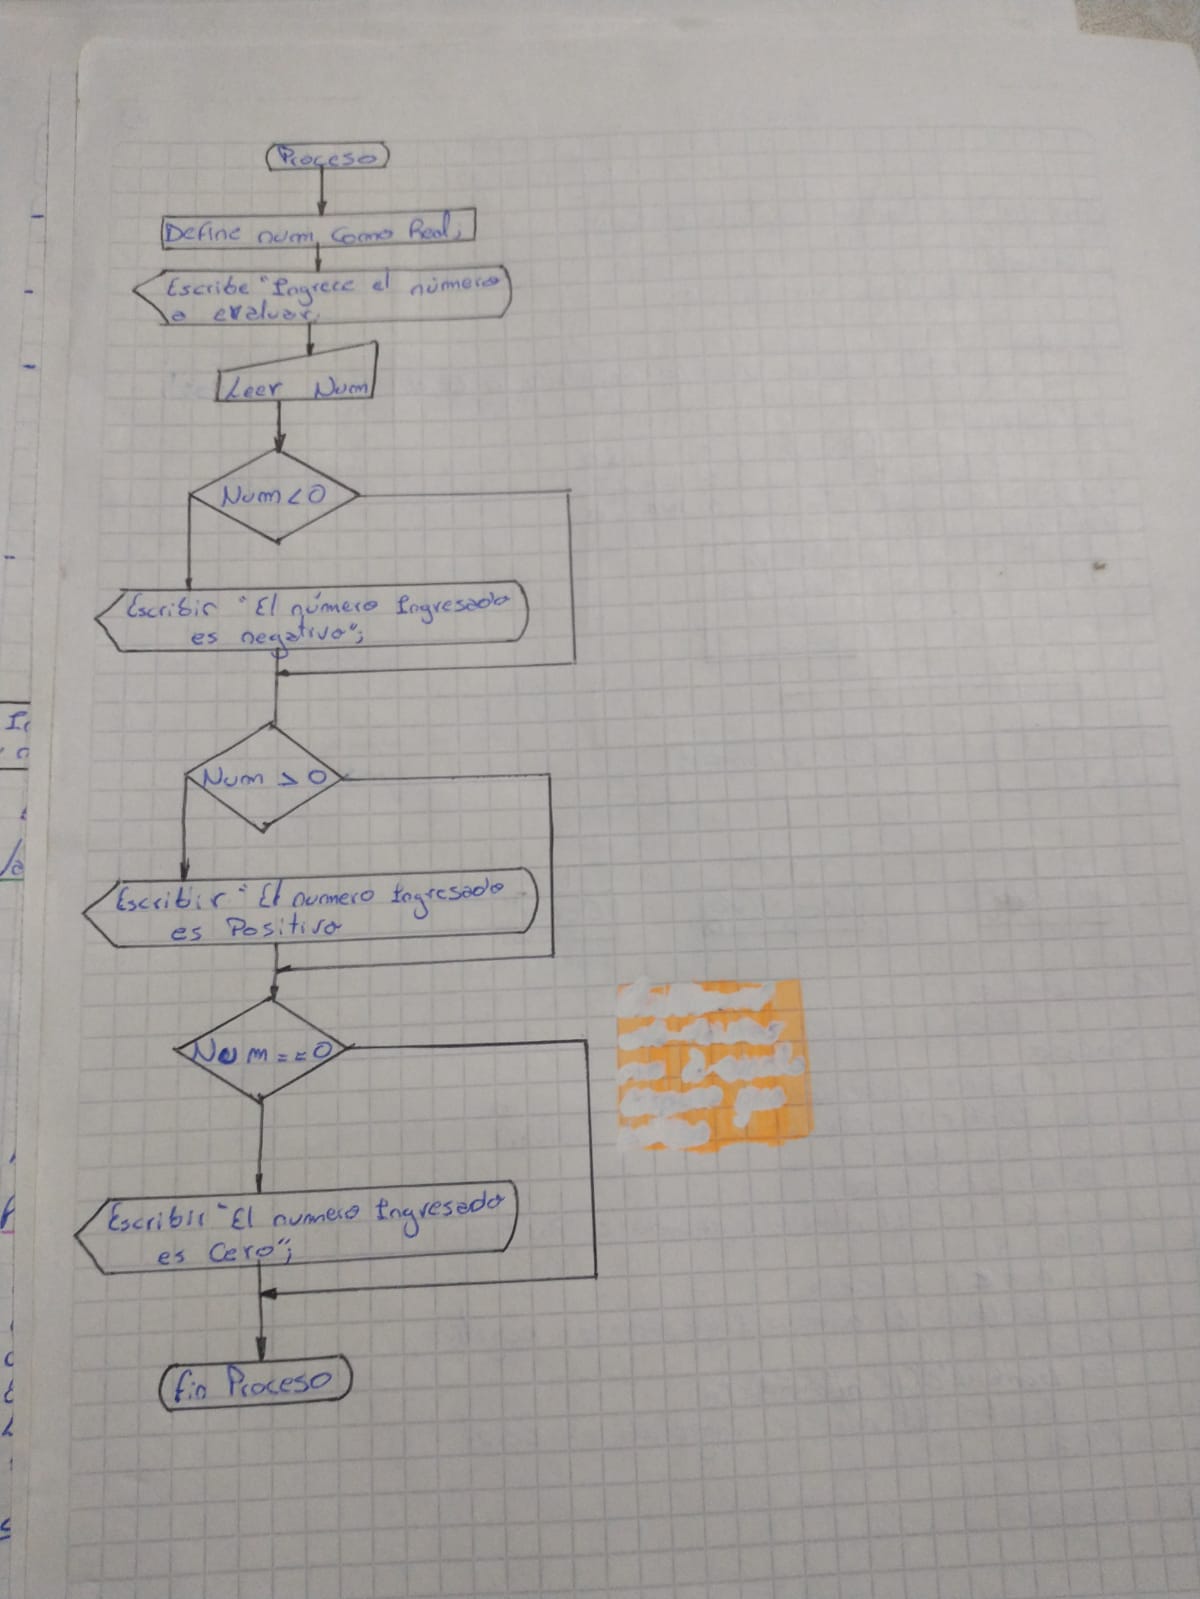 Proceso
Define num Como Real;
Escribe "Ingrece el número
a evaluar.
Leer Num
Num<0
Escribir "El número Ingresado
es negativo";
Num > 0
Escribir "El numero Ingresado
es Positivo
Num==0
Escribir "El numero Ingresado
es Cero";
fin Proceso